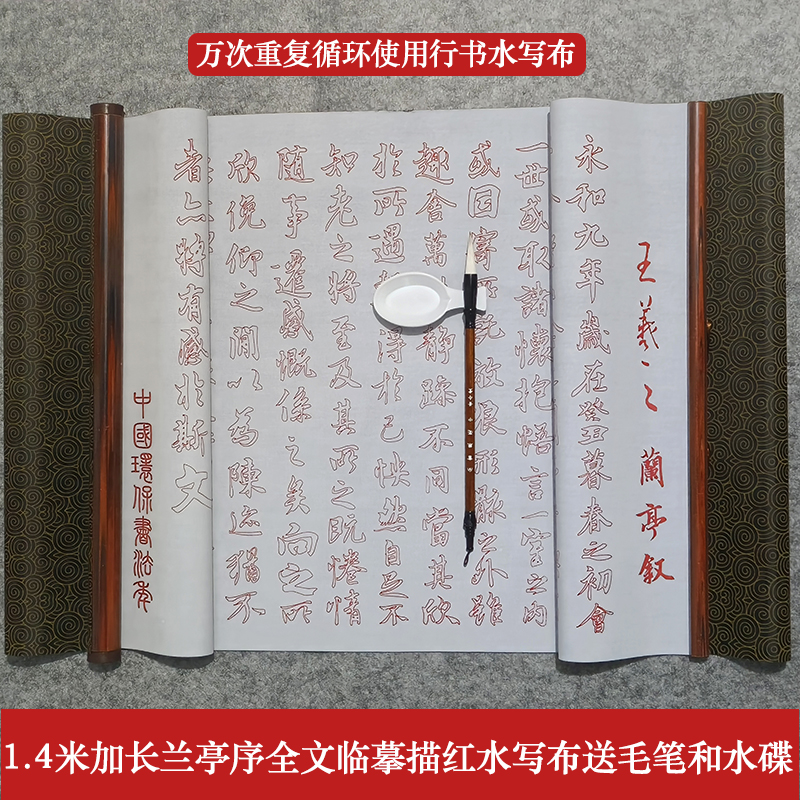 万次重复循环使用行书水写布
王羲之 蘭亭叙
永和九年歲在癸丑暮春之初會
一世或取諸懷抱悟言一室之内
或因寄所託放浪形骸之外雖
趣舍萬静躁不同當其欣
於所遇得於己怏然自足不
知老之將至及其所之既惓情
随事遷感慨係之矣向之所
欣俛仰之閒以為陳迹猶不
者亦將有感於斯文
中國環保書法布
1.4米加长兰亭序全文临摹描红水写布送毛笔和水碟